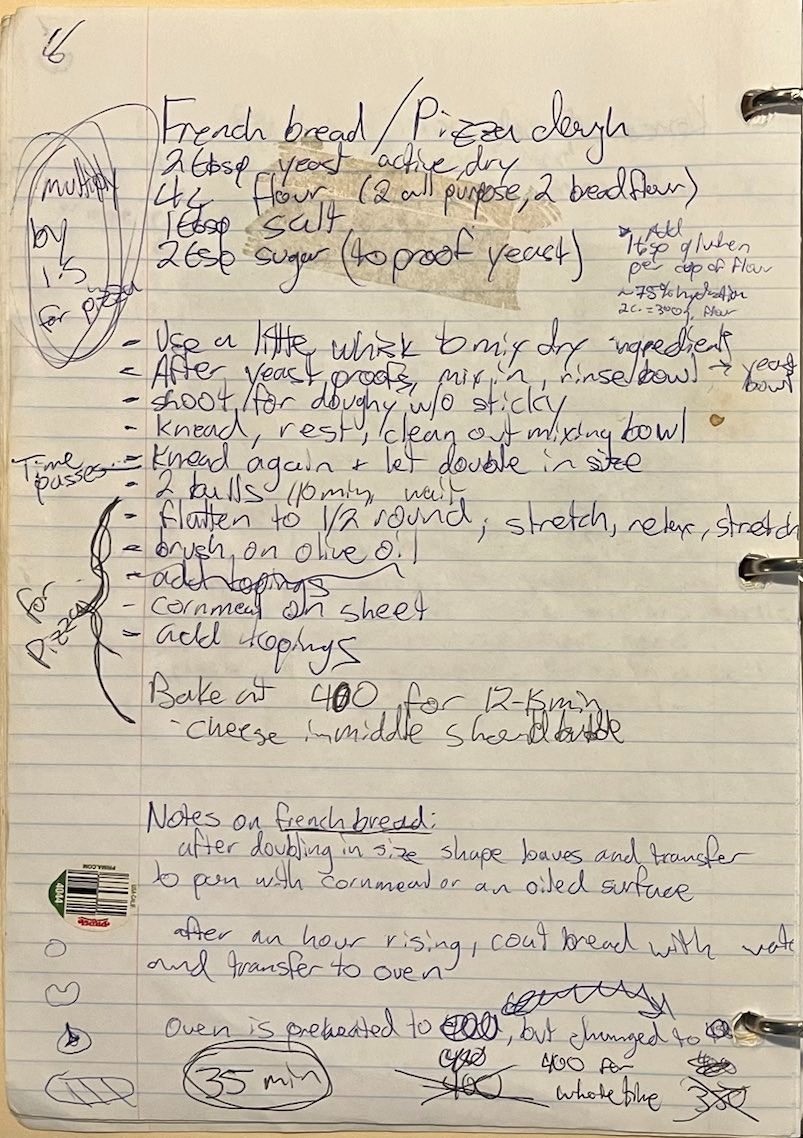 French bread / Pizza dough
2 tbsp yeast active, dry
4 c flour (2 all purpose, 2 bread flour)
1 tbsp salt
2 tsp sugar (to proof yeast)
multiply
by
1.5
for pizza
Add
1 tsp gluten
per cup of flour
~75% hydration
2c. = 300g flour
- Use a little whisk to mix dry ingredients
- After yeast proofs, mix in, rinse bowl → yeast
bowl
- shoot for doughy w/o sticky
- Knead, rest, clean out mixing bowl
Time
passes...
- Knead again + let double in size
- 2 balls 10 min, wait
for
pizza
- flatten to 1/2 round, stretch, relax, stretch
- brush on olive oil
- add topings
- cornmeal on sheet
- add topings
Bake at 400 for 12-15 min
- cheese in middle should bubble
Notes on french bread:
after doubling in size shape loaves and transfer
to pan with cornmeal or an oiled surface
4044
after an hour rising, coat bread with wate
and transfer to oven
Oven is preheated to , but changed to
35 min
400
400 for
whole time
350